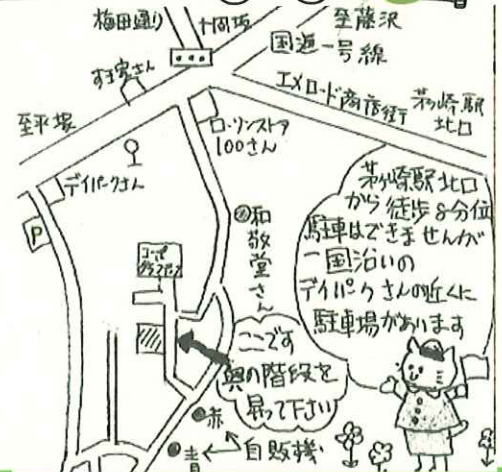 梅田通り
十間坂
至藤沢
国道一号線
すき家さん
エメロード商店街
茅ヶ崎駅
北口
至平塚
ローソンストア
100さん
デイパークさん
P
和敬堂さん
コーポ
茅ヶ崎駅北口
から徒歩8分位
駐車はできませんが
一国沿いの
デイパークさんの近くに
駐車場があります
ここです
奥の階段を
昇って下さい
赤
青
自販機